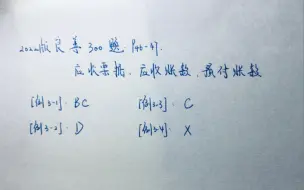 2022版良善300题 P46-47.
应收票据、应收账款、预付账款
[例3-1]. BC
[例3-3] C
[例3-2]. D
[例3-4]. X